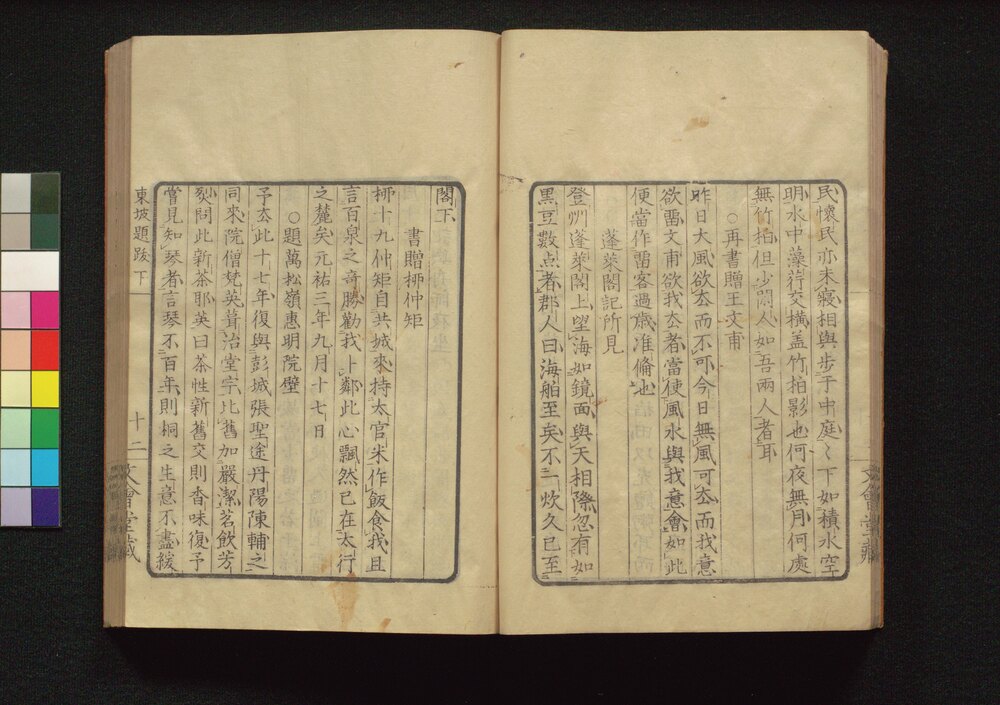 民懷民亦未寢相與步于中庭〻下如積水空
明水中藻荇交橫盖竹柏影也何夜無月何處
無竹柏但少閑人如吾兩人者耳
○再書贈王文甫
昨日大風欲去而不可今日無風可去而我意
欲畱文甫欲我去者當使風水與我意會如此
便當作畱客過歲准俻也
蓬萊閣記所見
登州蓬萊閣上望海如鏡面與天相際忽有如
黑豆數点者郡人曰海舶至矣不一炊久已至
文會堂藏
閣下
書贈栁仲矩
栁十九仲矩自共城來持太官米作飯食我且
言百泉之奇勝勸我卜鄰此心飄然已在太行
之麓矣元祐三年九月十七日
○題萬松嶺惠明院壁
予去此十七年復與彭城張聖途丹陽陳輔之
同來院僧梵英葺治堂宇比舊加嚴潔茗飲芳
烈問此新茶耶英曰茶性新舊交則香味復予
嘗見知琴者言琴不百年則桐之生意不盡緩
東坡題跋下
十二
文會堂藏